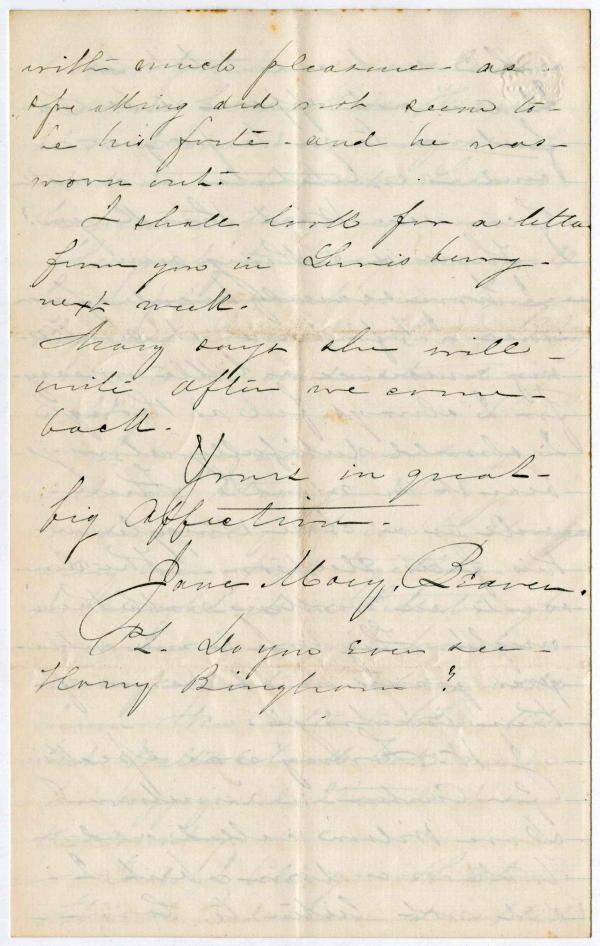 with much pleasure - as
speaking did not seem to
be his forte - and he was
worn out.
I shall look for a letter
from you in Lewisburg -
next week.
Mary says she will -
write after we come -
back.
Yours in great
big affection -
Jane Mary. Beaver.
PS. Do you ever see -
Harry Bingham ?